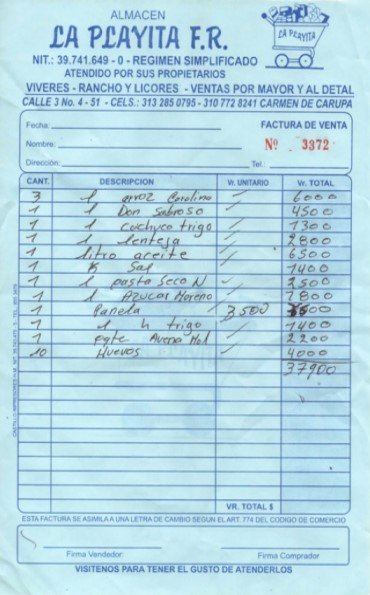 ALMACEN
LA PLAYITA F.R.
LA PLAYITA
NIT.: 39.741.649 - 0 - REGIMEN SIMPLIFICADO
ATENDIDO POR SUS PROPIETARIOS
VIVERES - RANCHO Y LICORES - VENTAS POR MAYOR Y AL DETAL
CALLE 3 No. 4 - 51 - CELS.: 313 285 0795 - 310 772 8241 CARMEN DE CARUPA
Fecha: FACTURA DE VENTA
Nombre: Nº 3372
Dirección: Tel.:
CANT. DESCRIPCION Vr. UNITARIO Vr. TOTAL
3 l arroz Carolina 6000
1 l Don Sabroso 4500
1 l cuchuco trigo 1300
1 l lenteja 2800
1 litro aceite 6500
1 K Sal 1400
1 l pasta seco N 2500
1 l Azucar Moreno 1800
1 Panela 3500
1 l h trigo 1400
1 pqte Avena Mol 2200
10 Huevos 4000
37900
VR. TOTAL $
ESTA FACTURA SE ASIMILA A UNA LETRA DE CAMBIO SEGUN EL ART. 774 DEL CODIGO DE COMERCIO
Firma Vendedor: Firma Comprador
VISITENOS PARA TENER EL GUSTO DE ATENDERLOS